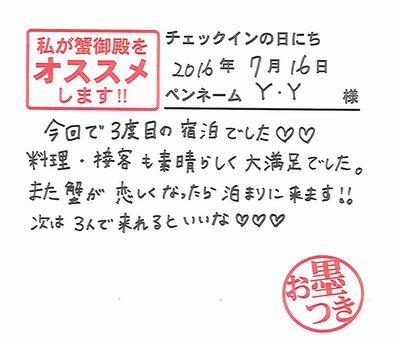 私が蟹御殿を
オススメ
します!!
チェックインの日にち
2016年 7月16日
ペンネーム Y・Y 様
今回で3度目の宿泊でした♡♡
料理・接客も素晴らしく大満足でした。
また蟹が恋しくなったら泊まりに来ます!!
次は3人で来れるといいな♡♡♡
お墨つき